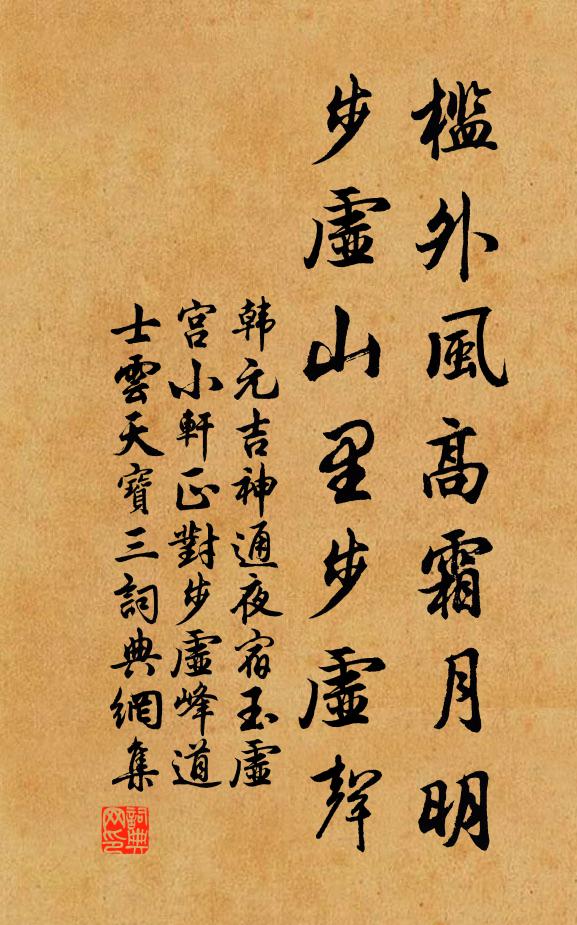 檻外風高霜月明
步虛山里步虛聲
韩元吉神通夜宿玉虛
宮小軒正對步虛峰道
士雲天寶三詞典網集
詞典
网印